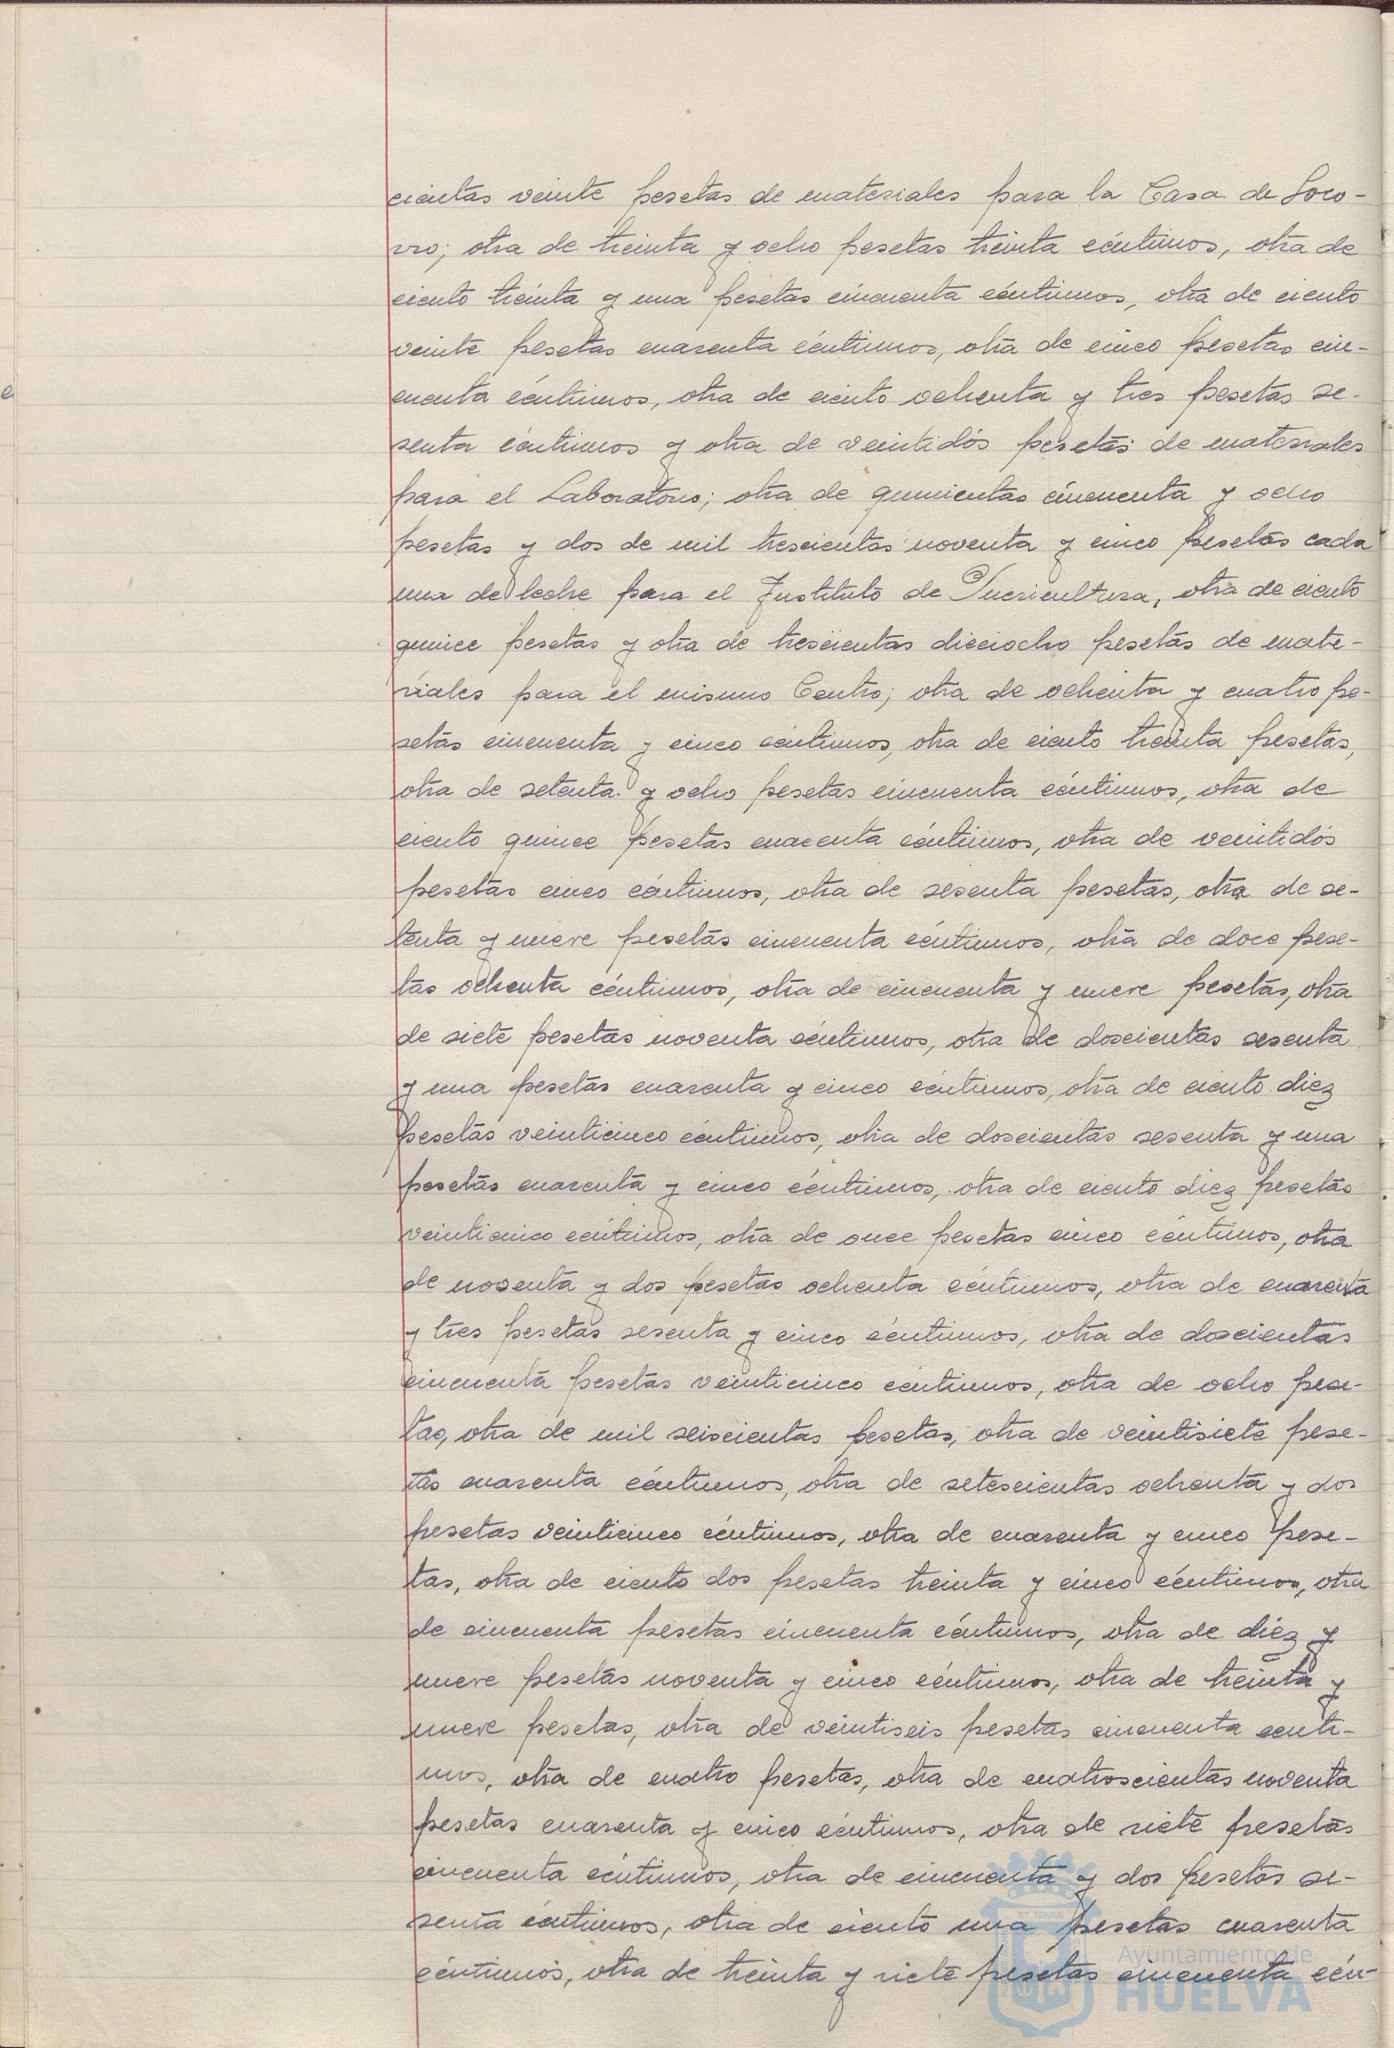 cientas veinte pesetas de materiales para la Casa de Soco-
rro; otra de treinta y ocho pesetas treinta céntimos, otra de
ciento treinta y una pesetas cincuenta céntimos, otra de ciento
veinte pesetas cuarenta céntimos, otra de cinco pesetas cin-
cuenta céntimos, otra de ciento ochenta y tres pesetas se-
senta céntimos y otra de veintidós pesetas de materiales
para el Laboratorio; otra de quinientas cincuenta y ocho
pesetas y dos de mil trescientas noventa y cinco pesetas cada
una de leche para el Instituto de Puericultura, otra de ciento
quince pesetas y otra de trescientas dieciocho pesetas de mate-
riales para el mismo Centro; otra de ochenta y cuatro pe-
setas cincuenta y cinco céntimos, otra de ciento treinta pesetas,
otra de setenta y ocho pesetas cincuenta céntimos, otra de
ciento quince pesetas cuarenta céntimos, otra de veintidós
pesetas cinco céntimos, otra de sesenta pesetas, otra de se-
tenta y nueve pesetas cincuenta céntimos, otra de doce pese-
tas ochenta céntimos, otra de cincuenta y nueve pesetas, otra
de siete pesetas noventa céntimos, otra de doscientas sesenta
y una pesetas cuarenta y cinco céntimos, otra de ciento diez
pesetas veinticinco céntimos, otra de doscientas sesenta y una
pesetas cuarenta y cinco céntimos, otra de ciento diez pesetas
veinticinco céntimos, otra de once pesetas cinco céntimos, otra
de noventa y dos pesetas ochenta céntimos, otra de cuarenta
y tres pesetas sesenta y cinco céntimos, otra de doscientas
cincuenta pesetas veinticinco céntimos, otra de ocho pese-
tas, otra de mil seiscientas pesetas, otra de veintisiete pese-
tas cuarenta céntimos, otra de setescientas ochenta y dos
pesetas veinticinco céntimos, otra de cuarenta y cinco pese-
tas, otra de ciento dos pesetas treinta y cinco céntimos, otra
de cincuenta pesetas cincuenta céntimos, otra de diez y
nueve pesetas noventa y cinco céntimos, otra de treinta y
nueve pesetas, otra de veintiseis pesetas cincuenta centi-
mos, otra de cuatro pesetas, otra de cuatroscientas noventa
pesetas cuarenta y cinco céntimos, otra de siete pesetas
cincuenta céntimos, otra de cincuenta y dos pesetas se-
senta céntimos, otra de ciento una pesetas cuarenta
céntimos, otra de treinta y siete pesetas cincuenta cén-
ET TERRÆ
Ayuntamiento de
HUELVA